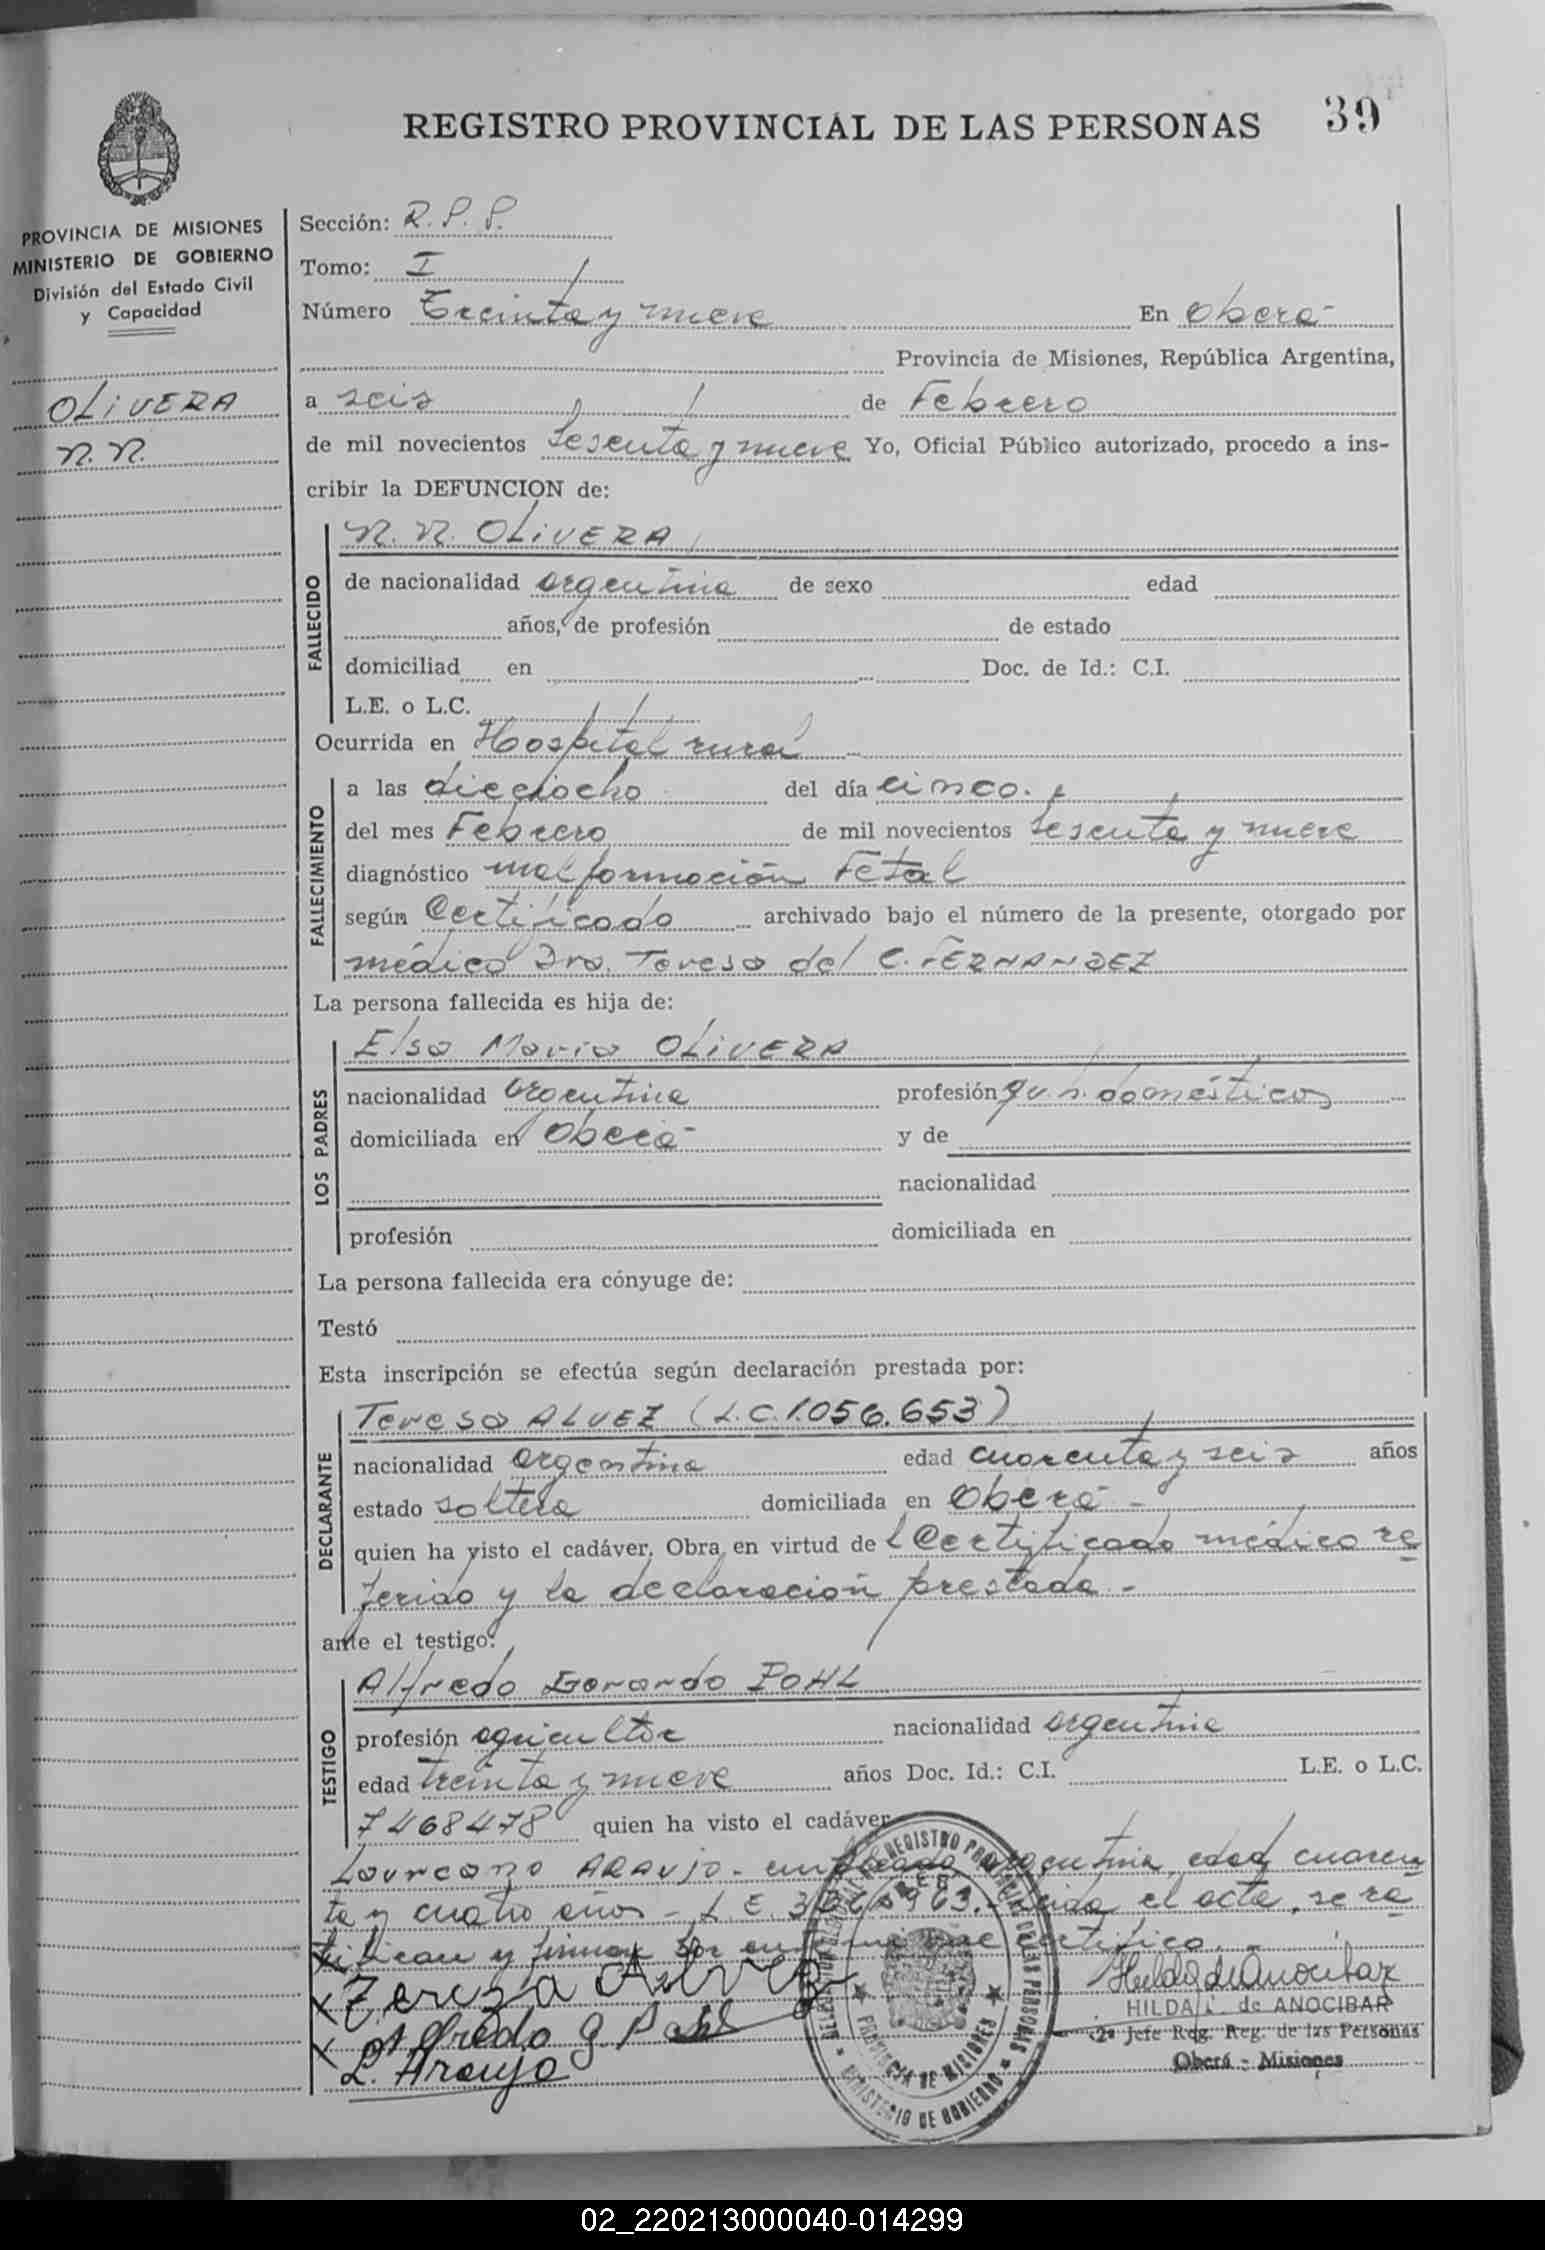 REGISTRO PROVINCIAL DE LAS PERSONAS 39
PROVINCIA DE MISIONES
MINISTERIO DE GOBIERNO
División del Estado Civil
y Capacidad
OLIVERA
N. N.
Sección: R. P. P.
Tomo: I
Número Treinta y nueve En Oberá
Provincia de Misiones, República Argentina,
a seis de Febrero
de mil novecientos sesenta y nueve Yo, Oficial Público autorizado, procedo a ins-
cribir la DEFUNCION de:
FALLECIDO
N. N. OLIVERA
de nacionalidad argentina de sexo edad
años, de profesión de estado
domiciliad en Doc. de Id.: C.I.
L.E. o L.C.
Ocurrida en Hospital rural
FALLECIMIENTO
a las dieciocho del día cinco.
del mes Febrero de mil novecientos sesenta y nueve
diagnóstico malformación Fetal
según Certificado archivado bajo el número de la presente, otorgado por
médico Dra. Teresa del C. FERNANDEZ
La persona fallecida es hija de:
LOS PADRES
Elsa María OLIVERA
nacionalidad argentina profesión qu. h. domésticos
domiciliada en Oberá y de
nacionalidad
profesión domiciliada en
La persona fallecida era cónyuge de:
Testó
Esta inscripción se efectúa según declaración prestada por:
DECLARANTE
Teresa ALVEZ (L.C. 1.056.653)
nacionalidad argentina edad cuarenta y seis años
estado soltera domiciliada en Oberá -
quien ha visto el cadáver, Obra en virtud del Certificado médico re
ferido y la declaración prestada -
ante el testigo:
TESTIGO
Alfredo Gerardo POHL
profesión agricultor nacionalidad argentina
edad treinta y nueve años Doc. Id.: C.I. L.E. o L.C.
7468478 quien ha visto el cadáver
Laureano ARAUJO - empleado, argentina, edad cuaren
ta y cuatro años - L.E. Leída el acta, se ra
tifican y firman por ante mí que certifico. -
Tereza Alvez
Alfredo G. Pohl
L. Araujo
Hilda de Anocibar
HILDA de ANOCIBAR
2º Jefe Reg. Reg. de las Personas
Oberá - Misiones
REGISTRO PROVINCIAL DE LAS PERSONAS
PROVINCIA DE MISIONES
MINISTERIO DE GOBIERNO
02_220213000040-014299